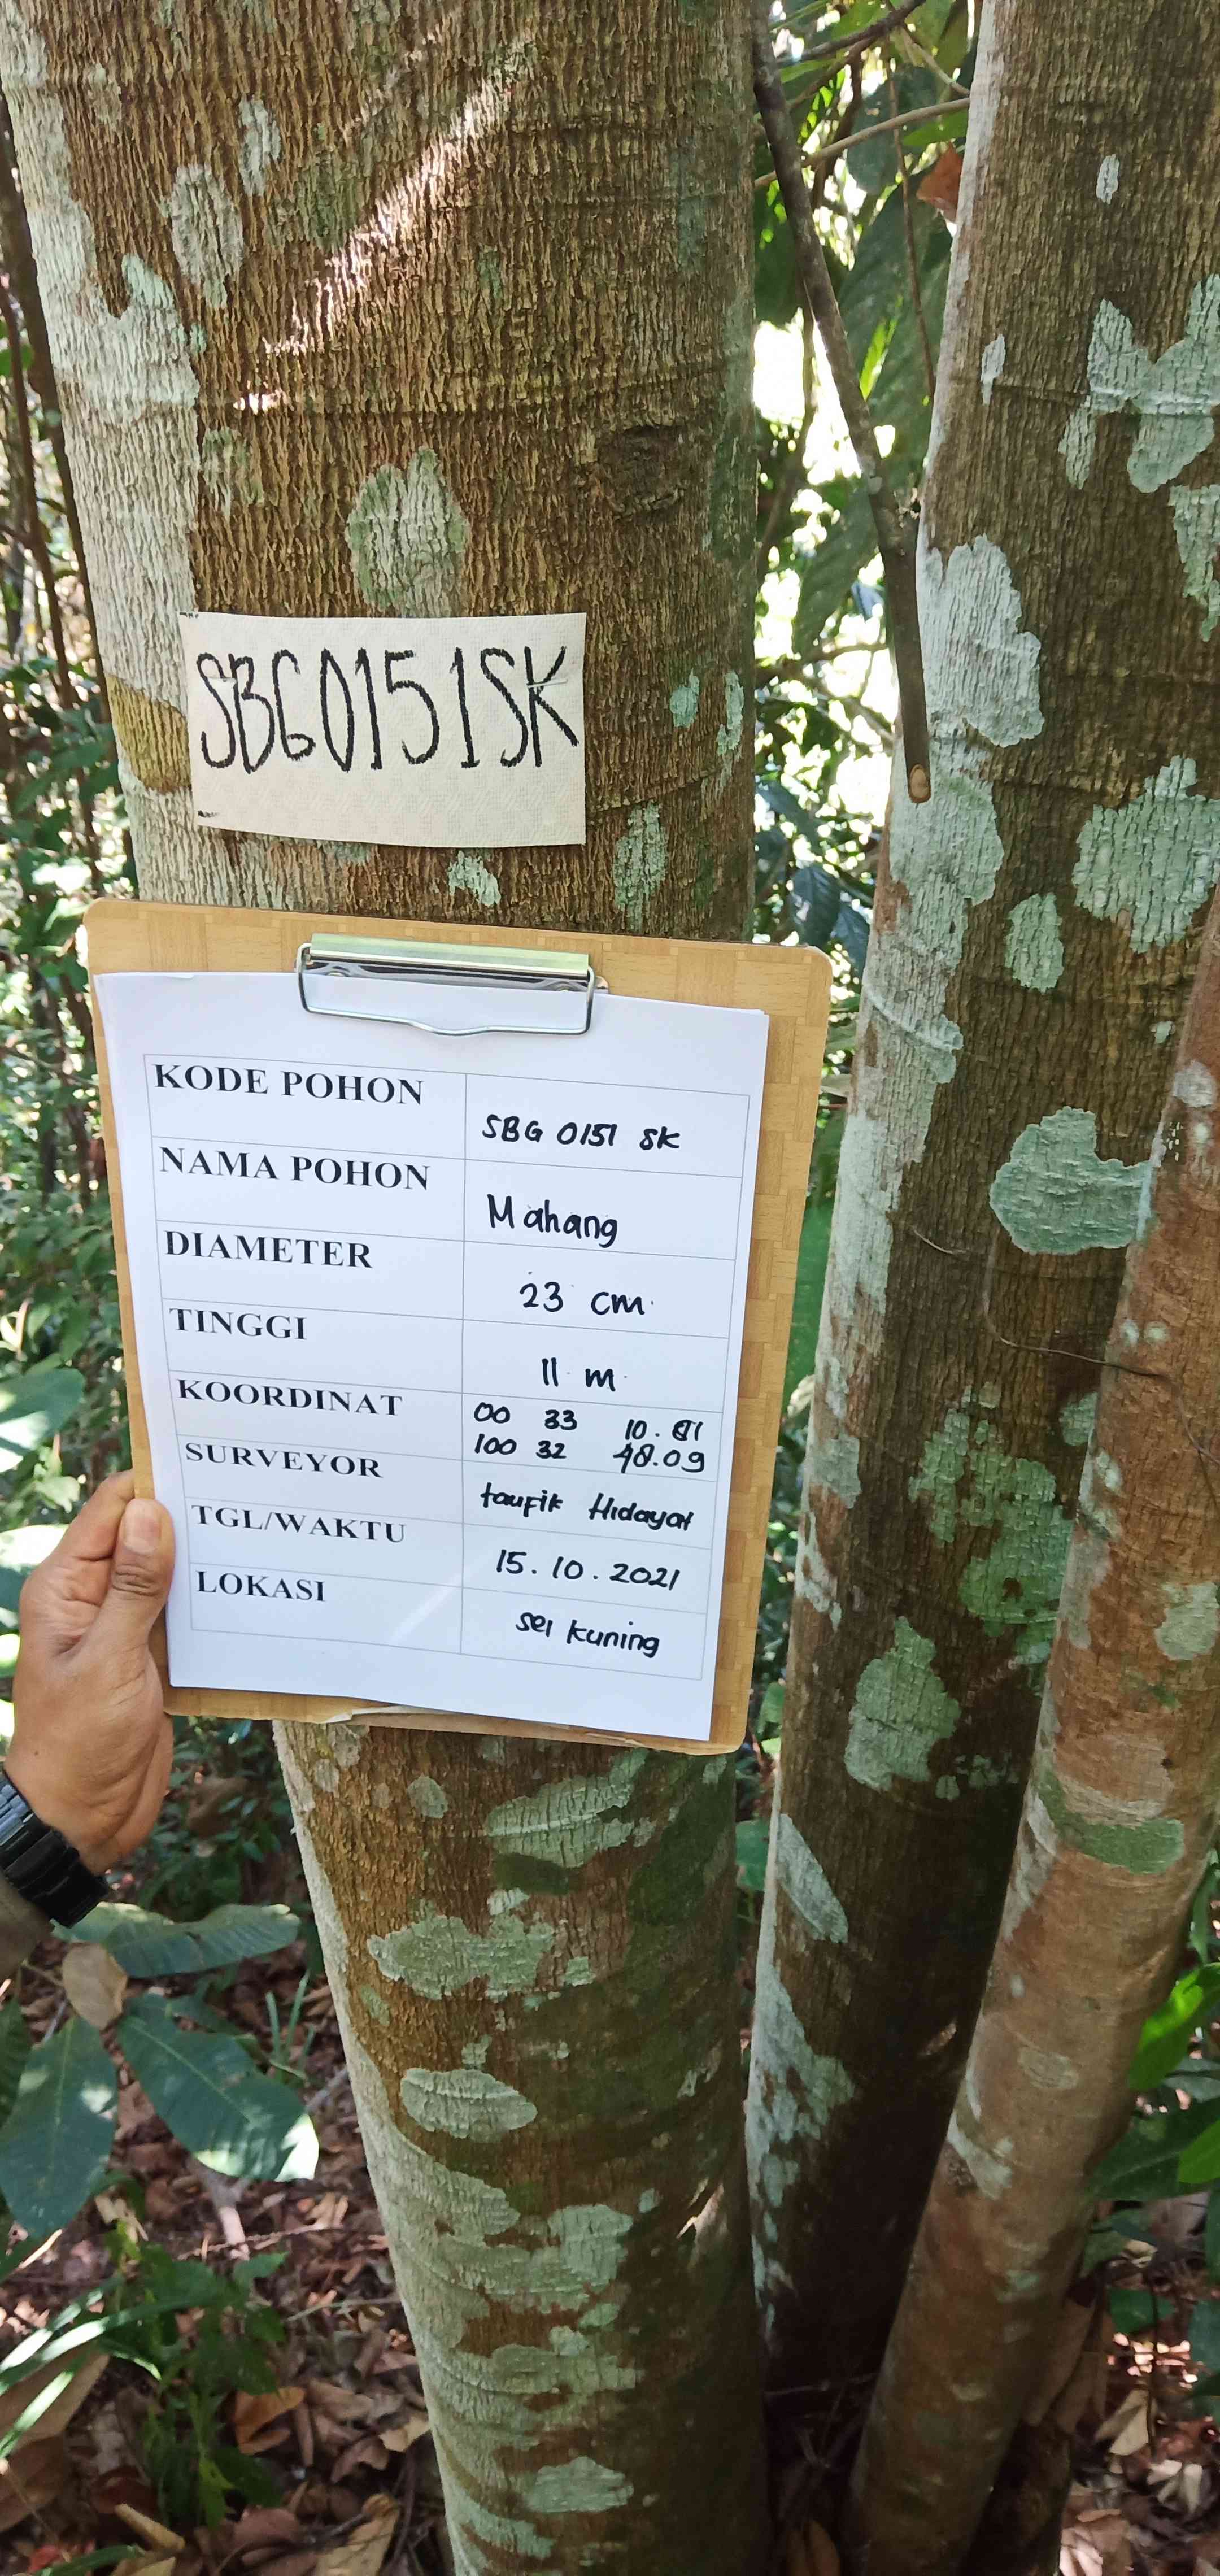 SBG0151SK
KODE POHON SBG 0151 SK
NAMA POHON Mahang
DIAMETER 23 cm
TINGGI 11 m
KOORDINAT 00 33 10.
100 32 48.09
SURVEYOR taufik Hidayat
TGL/WAKTU 15.10.2021
LOKASI sei kuning